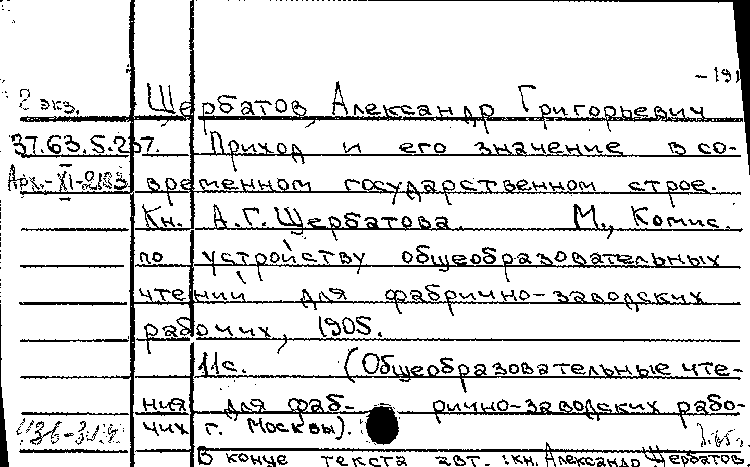 -191
2 экз. Щербатов, Александр Григорьевич
37.63.5.237. Приход и его значение в со-
Арх.-XI-2123 временном государственном строе.
Кн. А.Г. Щербатова. М., Комис.
по устройству общеобразовательных
чтений для фабрично-заводских
рабочих, 1905.
11с. (Общеобразовательные чте-
ния для фаб- рично-заводских рабо-
чих г. Москвы).
В конце текста авт.: кн. Александр Щербатов.